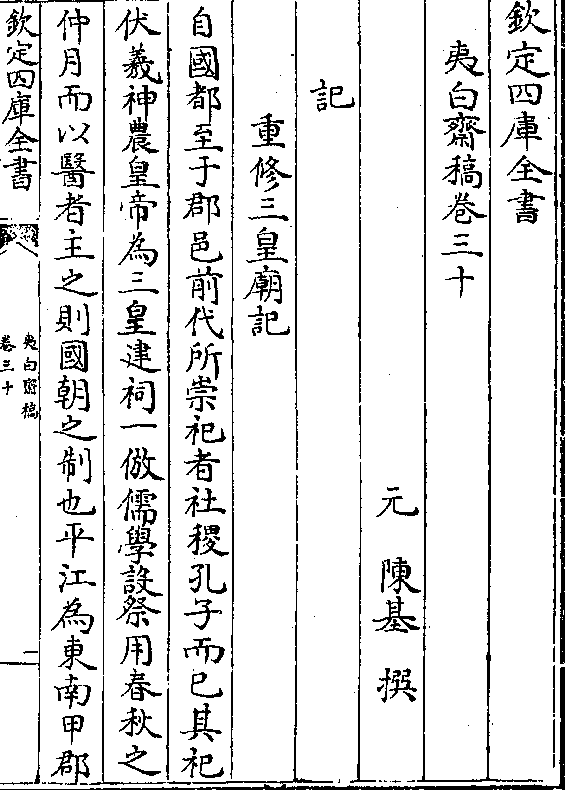 欽定四庫全書
夷白齋稿卷三十
元 陳基 撰
記
重修三皇廟記
自國都至于郡邑前代所崇祀者社稷孔子而已其祀
伏羲神農皇帝為三皇建祠一倣儒學設祭用春秋之
仲月而以醫者主之則國朝之制也平江為東南甲郡
欽定四庫全書
夷白齋稿
卷三十
一